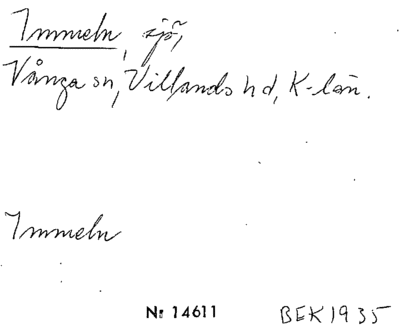 Immeln, sjö,
Vånga sn, Villands hd, K-län.
Immeln
Nr 14611 BEK 1935